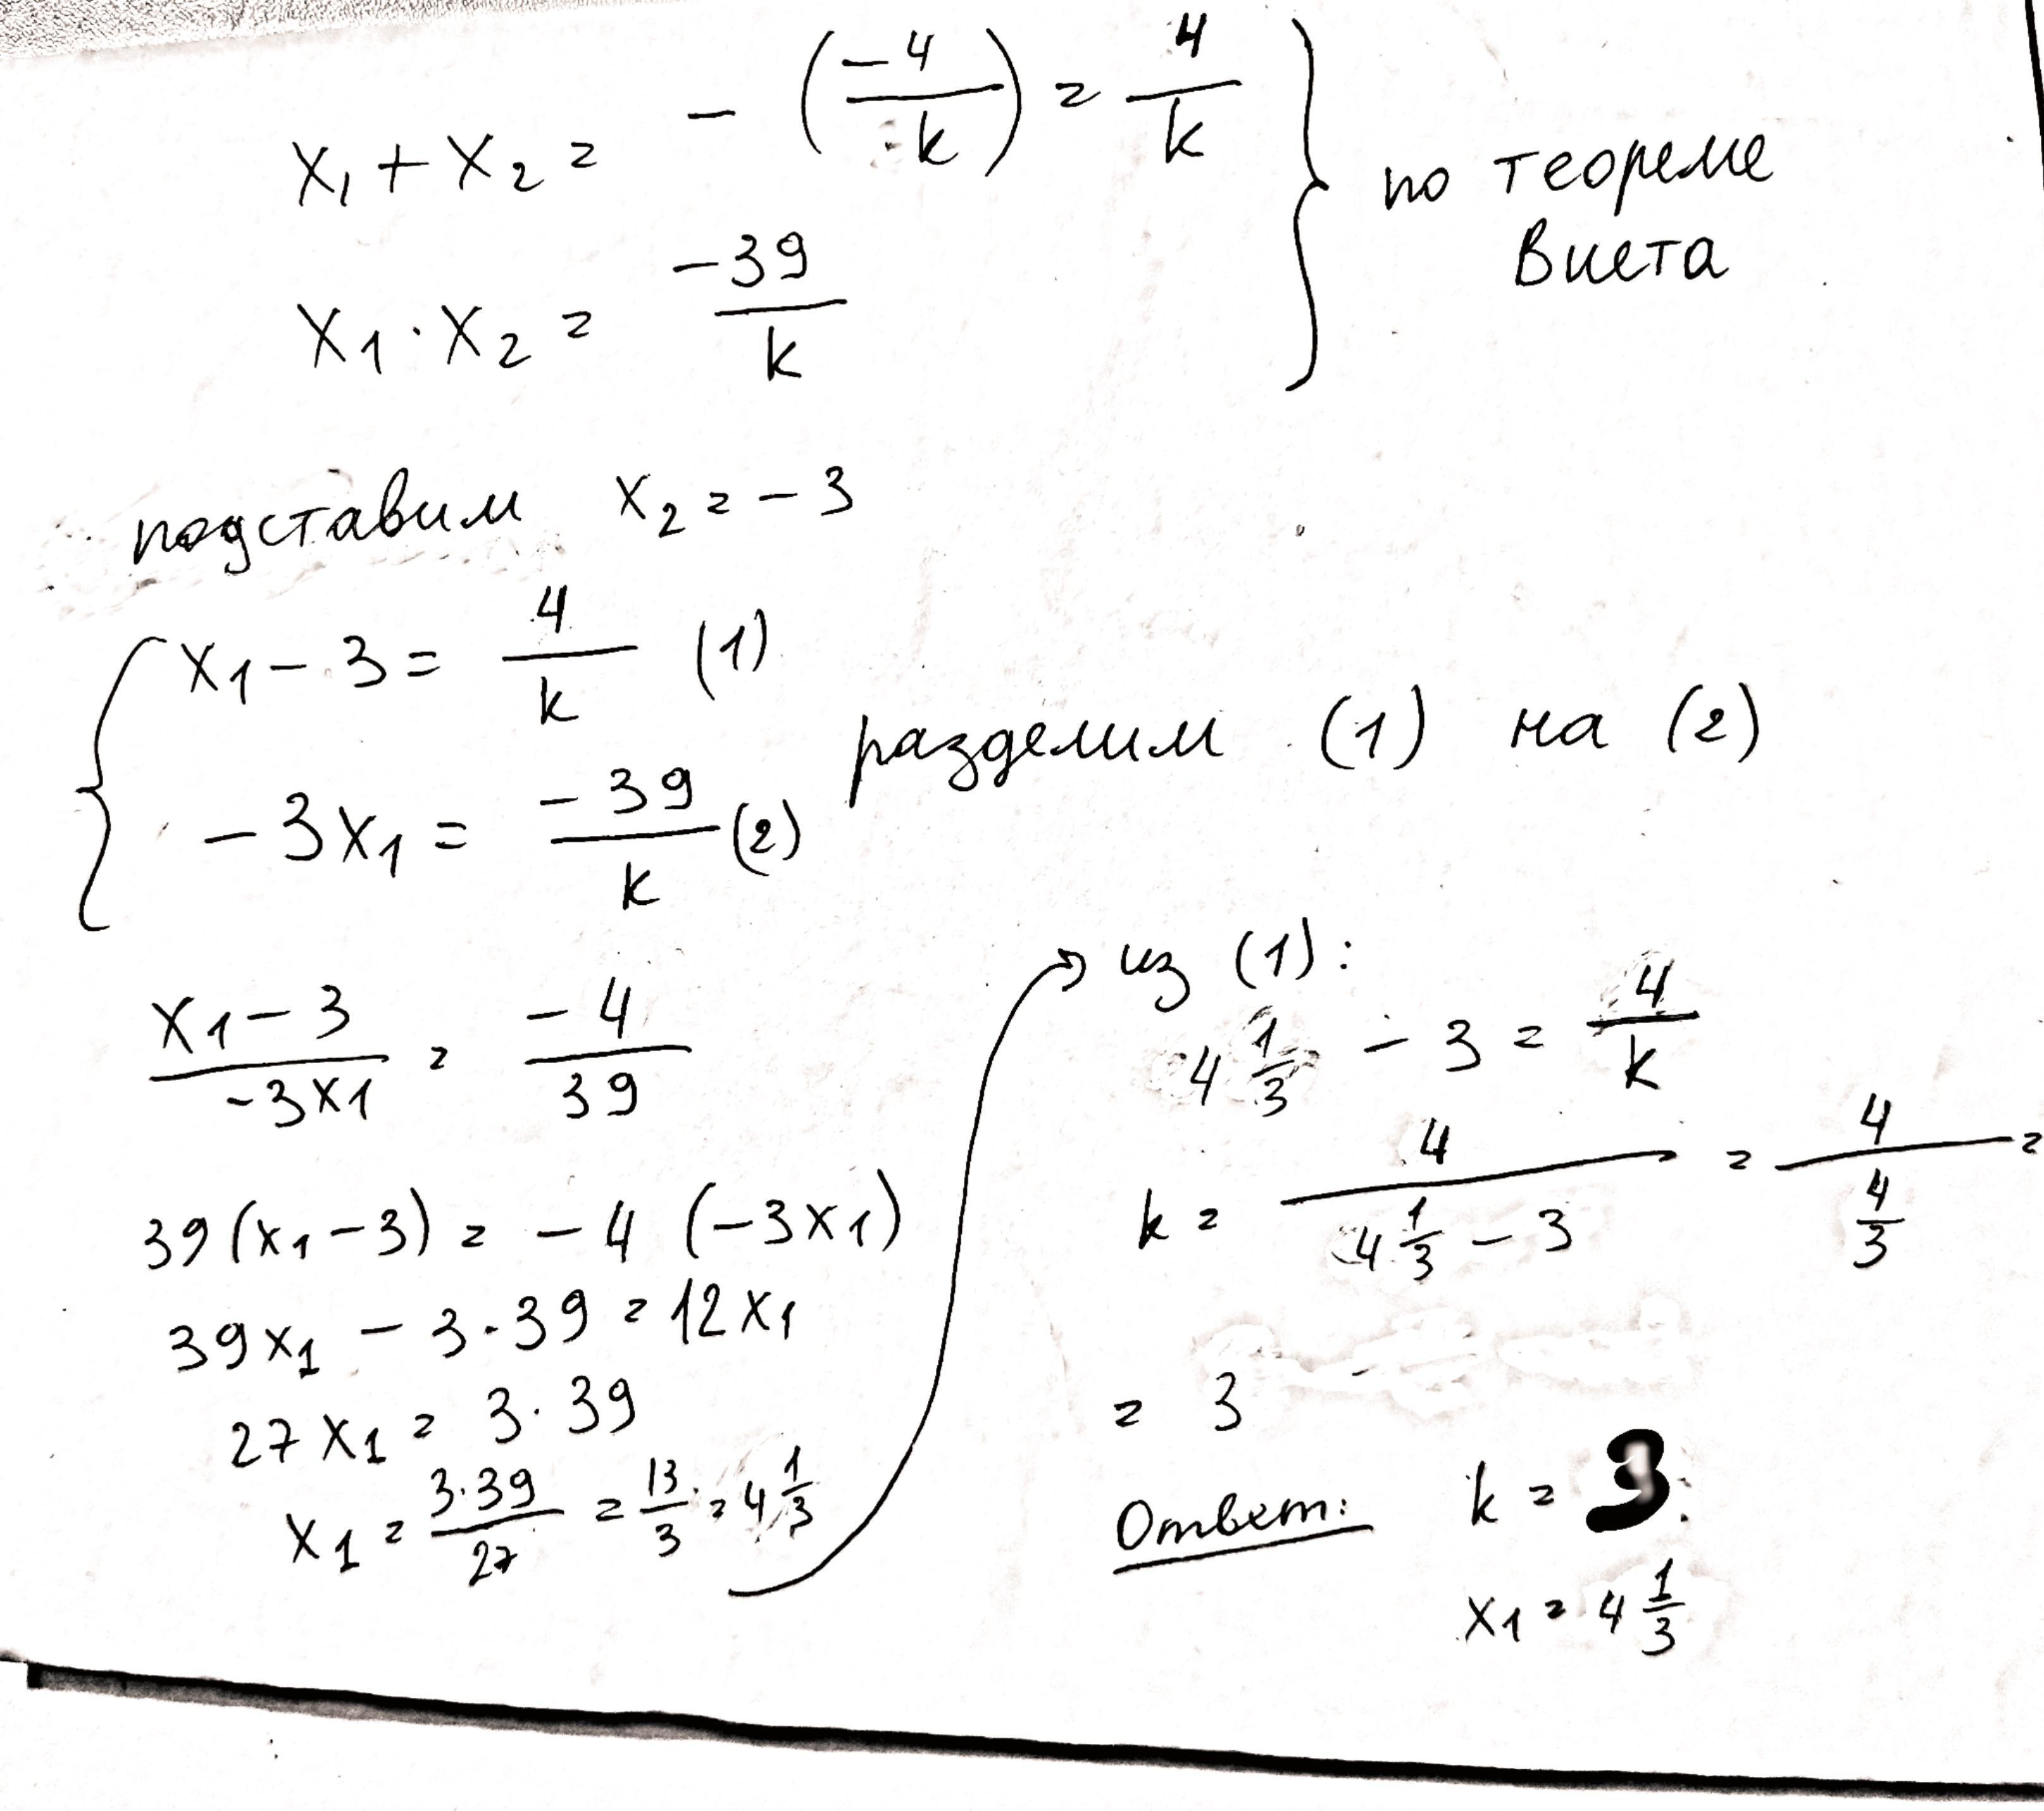 x₁ + x₂ = - (-4/k) = 4/k
по теореме
Виета
x₁ · x₂ = -39/k
подставим x₂ = -3
x₁ - 3 = 4/k (1)
-3x₁ = -39/k (2)
разделим (1) на (2)
(x₁ - 3)/(-3x₁) = -4/39
39(x₁ - 3) = -4 (-3x₁)
39x₁ - 3·39 = 12x₁
27x₁ = 3·39
x₁ = 3·39/27 = 13/3 = 4 1/3
из (1):
4 1/3 - 3 = 4/k
k = 4/(4 1/3 - 3) = 4/(4/3) =
= 3
Ответ: k = 3;
x₁ = 4 1/3